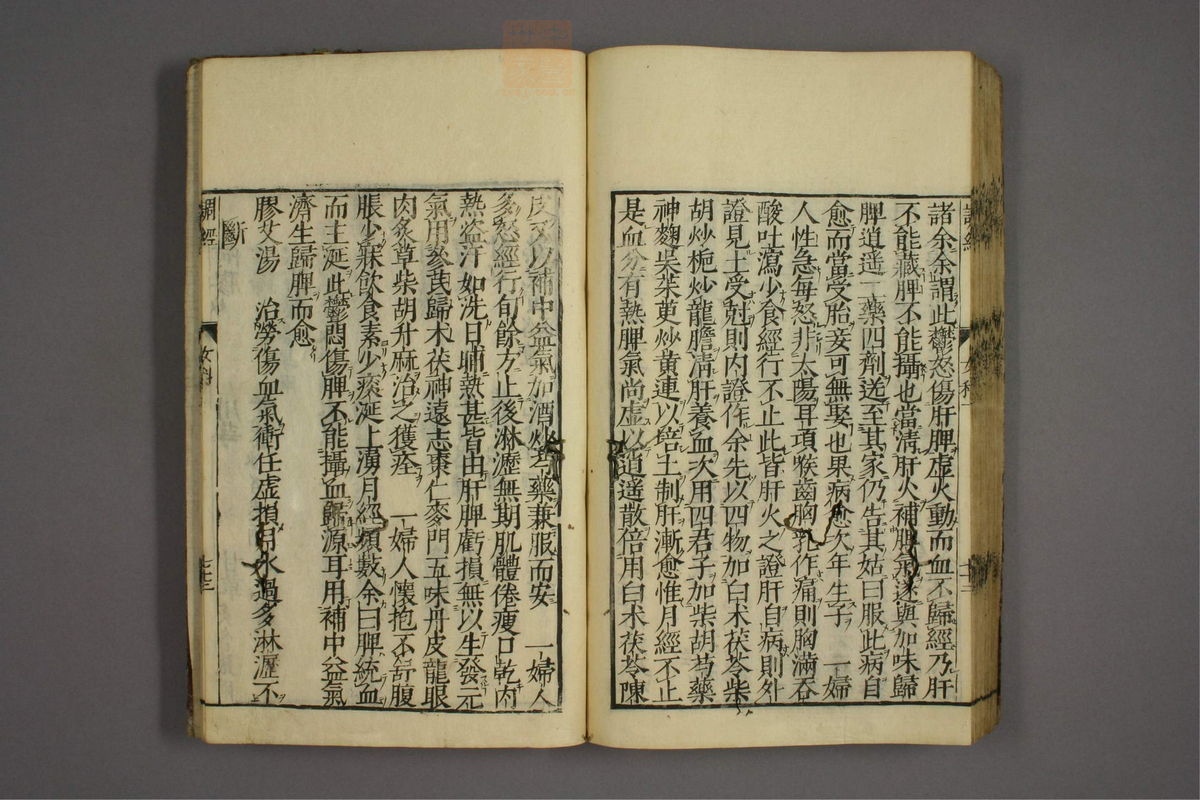 諸余余謂此鬱怒傷肝脾虛火動而血不歸經乃肝
不能藏脾不能攝也當清肝火補脾氣遂與加味歸
脾逍遥二藥四劑送至其家仍告其姑曰服此病自
愈而當受胎妾可無娶也果病愈次年生子　一婦
人性急每怒非太陽耳項喉齒胸乳作痛則胸滿吞
酸吐瀉少食經行不止此皆肝火之證肝自病則外
證見土受尅則内證作余先以四物加白术茯苓柴
胡炒梔炒龍膽清肝養血次用四君子加柴胡芍藥
神麴吳茱萸炒黄連以培土制肝漸愈惟月經不止
是血分有熱脾氣尚虛以逍遥散倍用白术茯苓陳
皮又以補中益氣加酒炒芍藥兼服而安　一婦人
多怒經行旬餘方止後淋瀝無期肌體倦瘦口乾内
熱盗汗如洗日晡熱甚皆由肝脾虧損無以生發元
氣用參芪歸术茯神遠志棗仁麥門五味丹皮龍眼
肉炙草柴胡升麻治之獲痊　一婦人懷抱不舒腹
脹少寐飲食素少痰涎上湧月經頻數余曰脾統血
而主涎此鬱悶傷脾不能攝血歸源耳用補中益氣
濟生歸脾而愈
膠艾湯　治勞傷血氣衝任虛損月水過多淋瀝不
斷
調經
女科